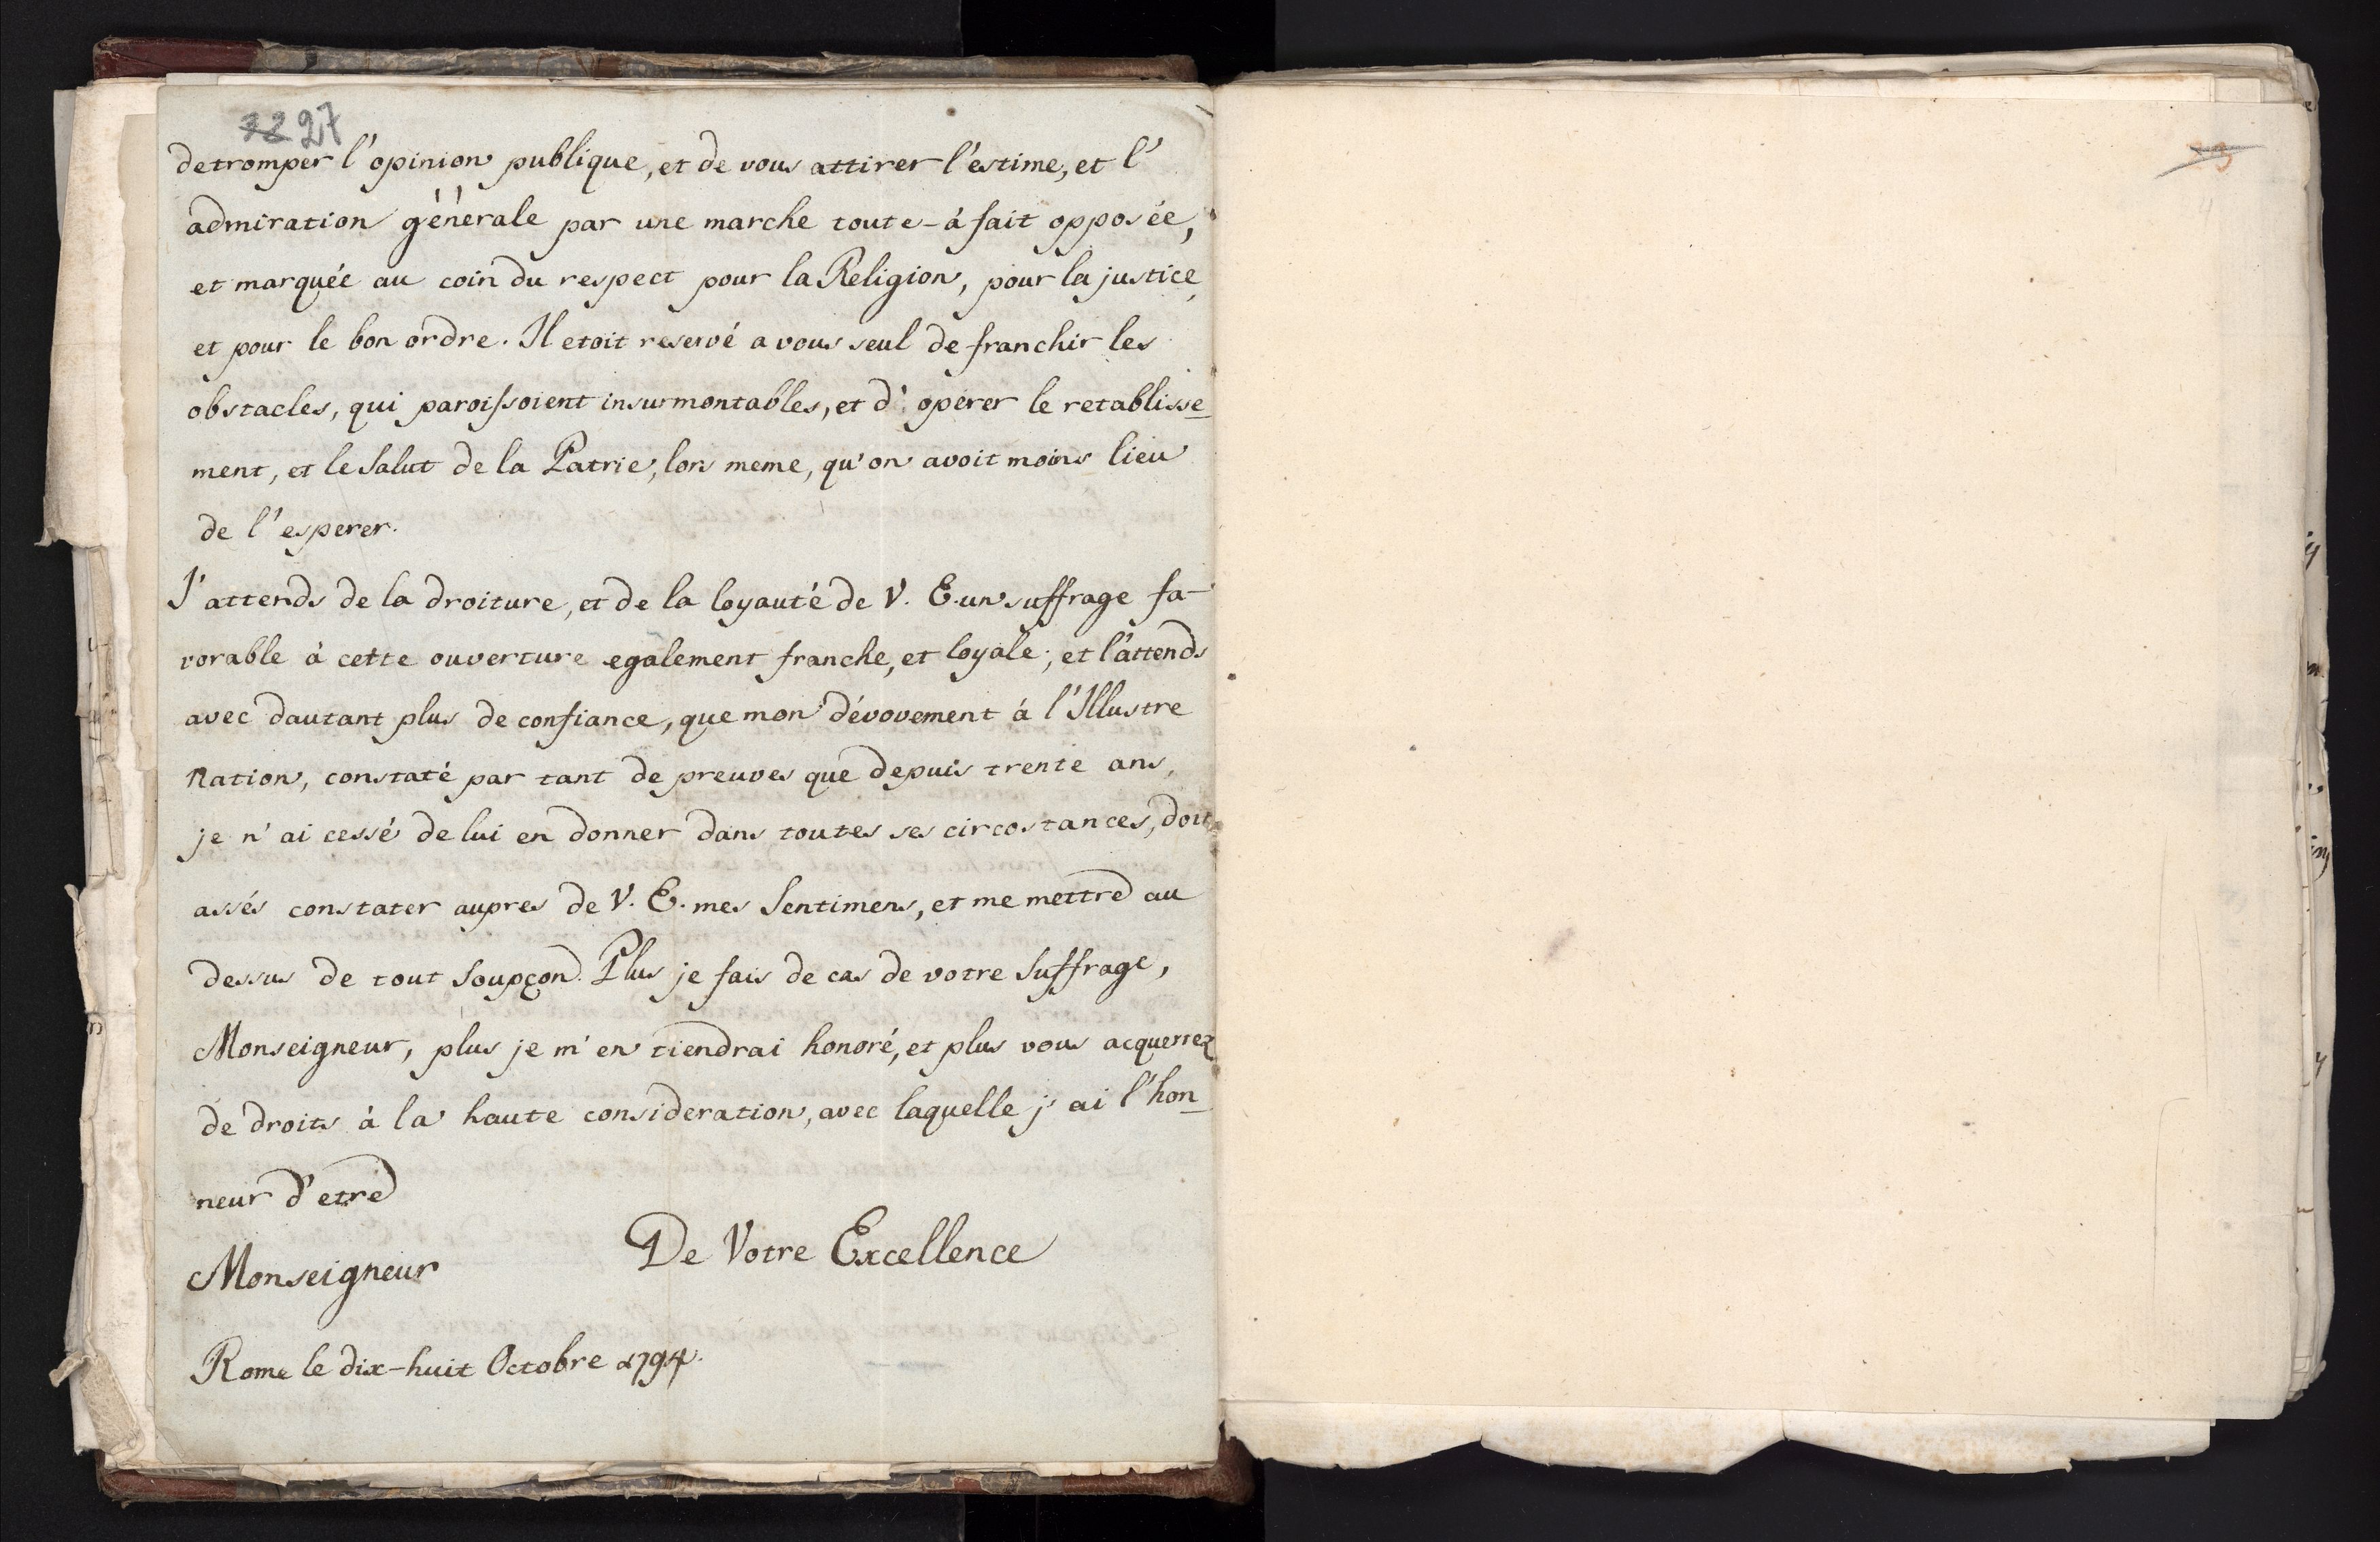 27
detromper l'opinion publique, et de vous attirer l'estime, et l'
admiration génerale par une marche toute-à fait opposée,
et marquée au coin du respect pour la Religion, pour la justice,
et pour le bon ordre. Il etoit reservé a vous seul de franchir les
obstacles, qui paroissoient insurmontables, et d'opérer le retablisse-
ment, et le Salut de la Patrie, lors meme, qu'on avoit moins lieu
de l'esperer.
J'attends de la droiture, et de la loyauté de V. E. un suffrage fa-
vorable à cette ouverture egalement franche, et loyale; et l'attends
avec dautant plus de confiance, que mon dévovement à l'Illustre
Nation, constaté par tant de preuves que depuis trente ans,
je n'ai cessé de lui en donner dans toutes ses circostances, doit
assés constater aupres de V. E. mes Sentimens, et me mettre au
dessus de tout Soupçon. Plus je fais de cas de votre Suffrage,
Monseigneur, plus je m'en tiendrai honoré, et plus vous acquerrez
de droits à la haute consideration, avec laquelle j'ai l'hon-
neur d'etre
De Votre Excellence
Monseigneur
Rome le dix-huit Octobre 1794.